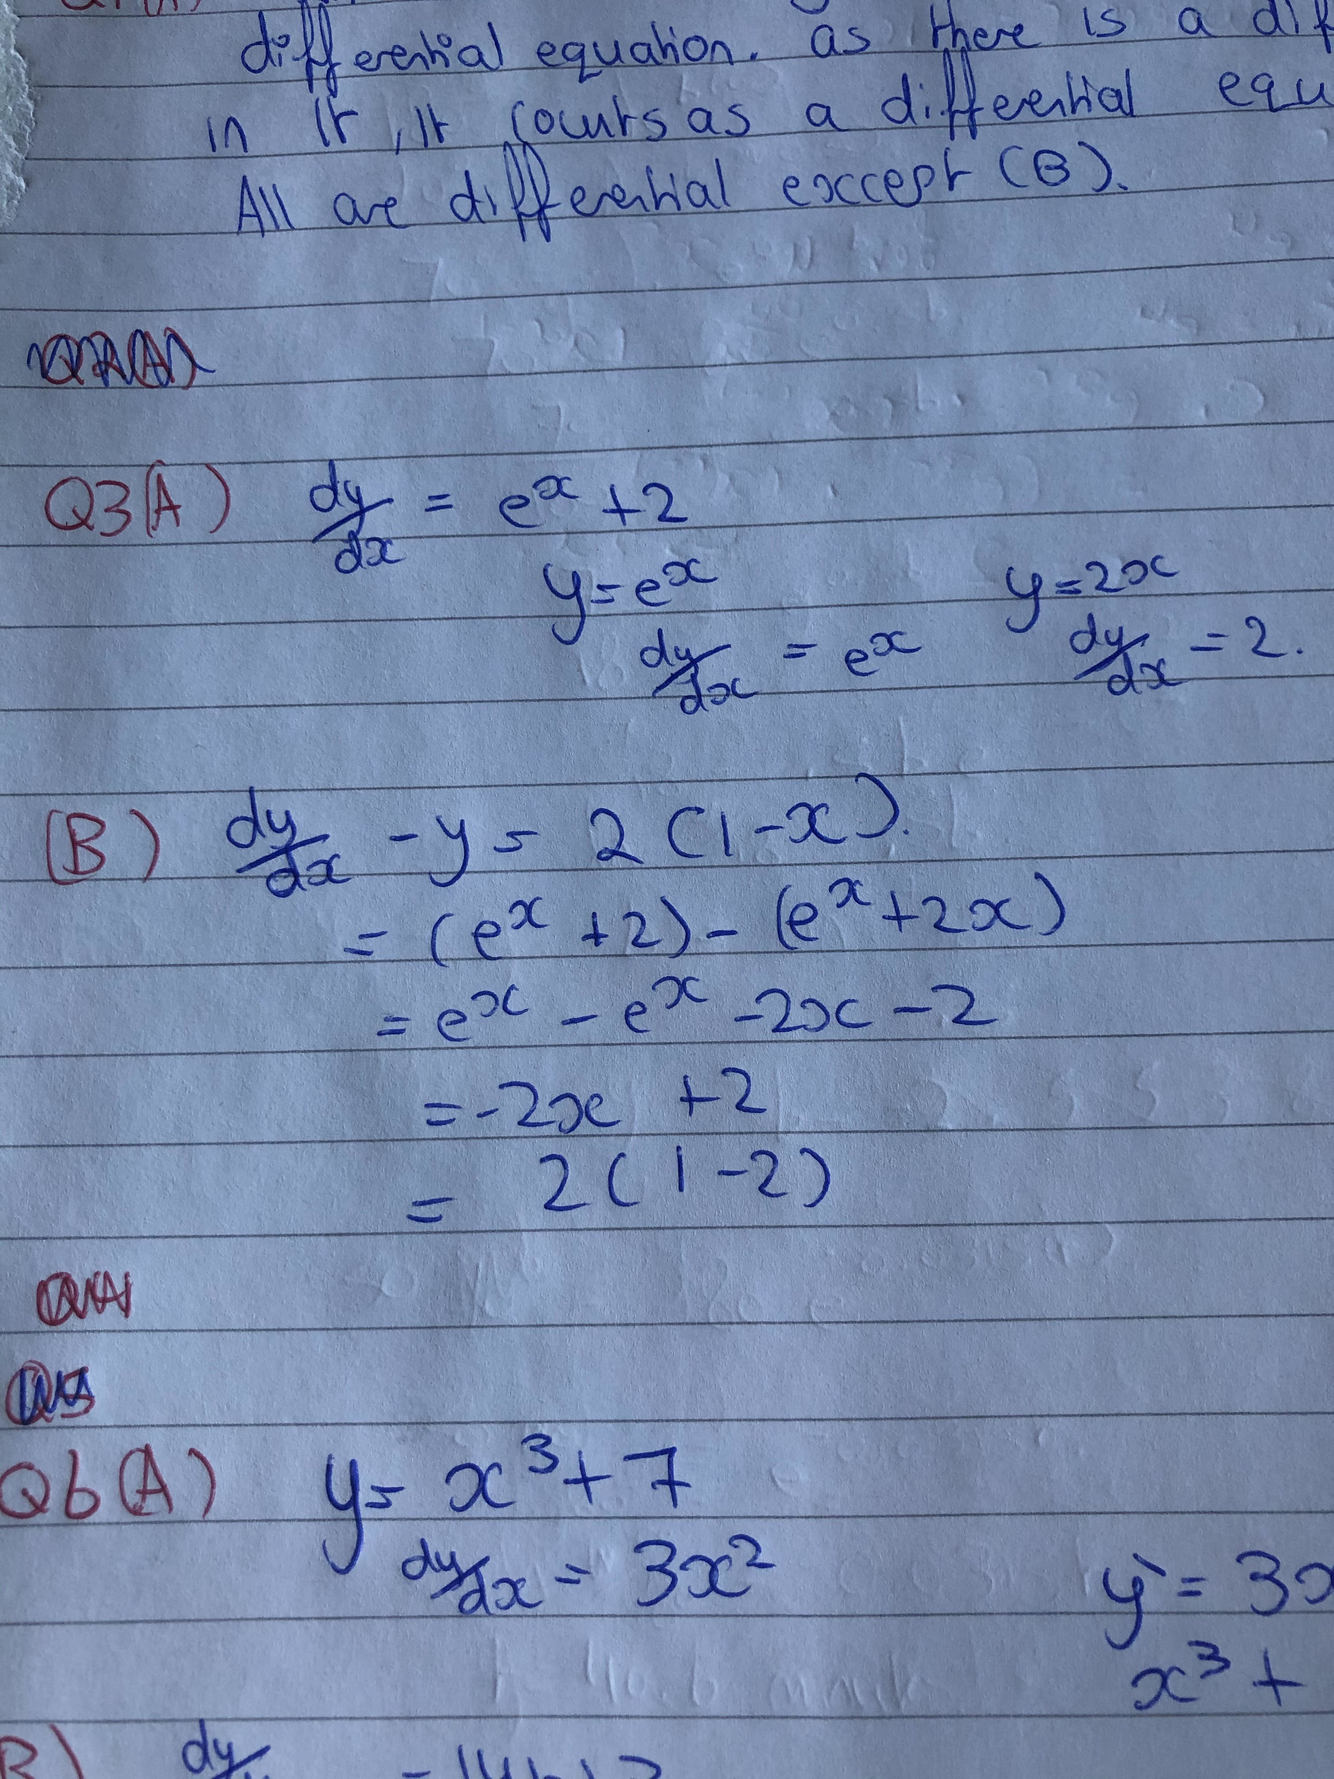 differential equation. as there is a dif
in it, it counts as a differential equ
All are differential except (B).
Q3(A) dy/dx = e^x + 2
y = e^x y = 2x
dy/dx = e^x dy/dx = 2.
(B) dy/dx - y = 2(1-x).
= (e^x + 2) - (e^x + 2x)
= e^x - e^x - 2x - 2
= -2x + 2
= 2(1-2)
Q6(A) y = x³ + 7
dy/dx = 3x² y' = 3x
x³ +
B) dy